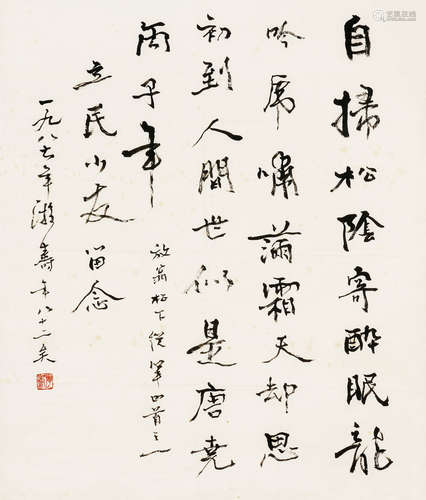 自掃松陰寄醉眠龍
吟虎嘯滿霜天却思
初到人間世似是唐堯
丙子年
放翁松下縱筆四首之一
立民小友留念
一九八七年游壽年八十二矣